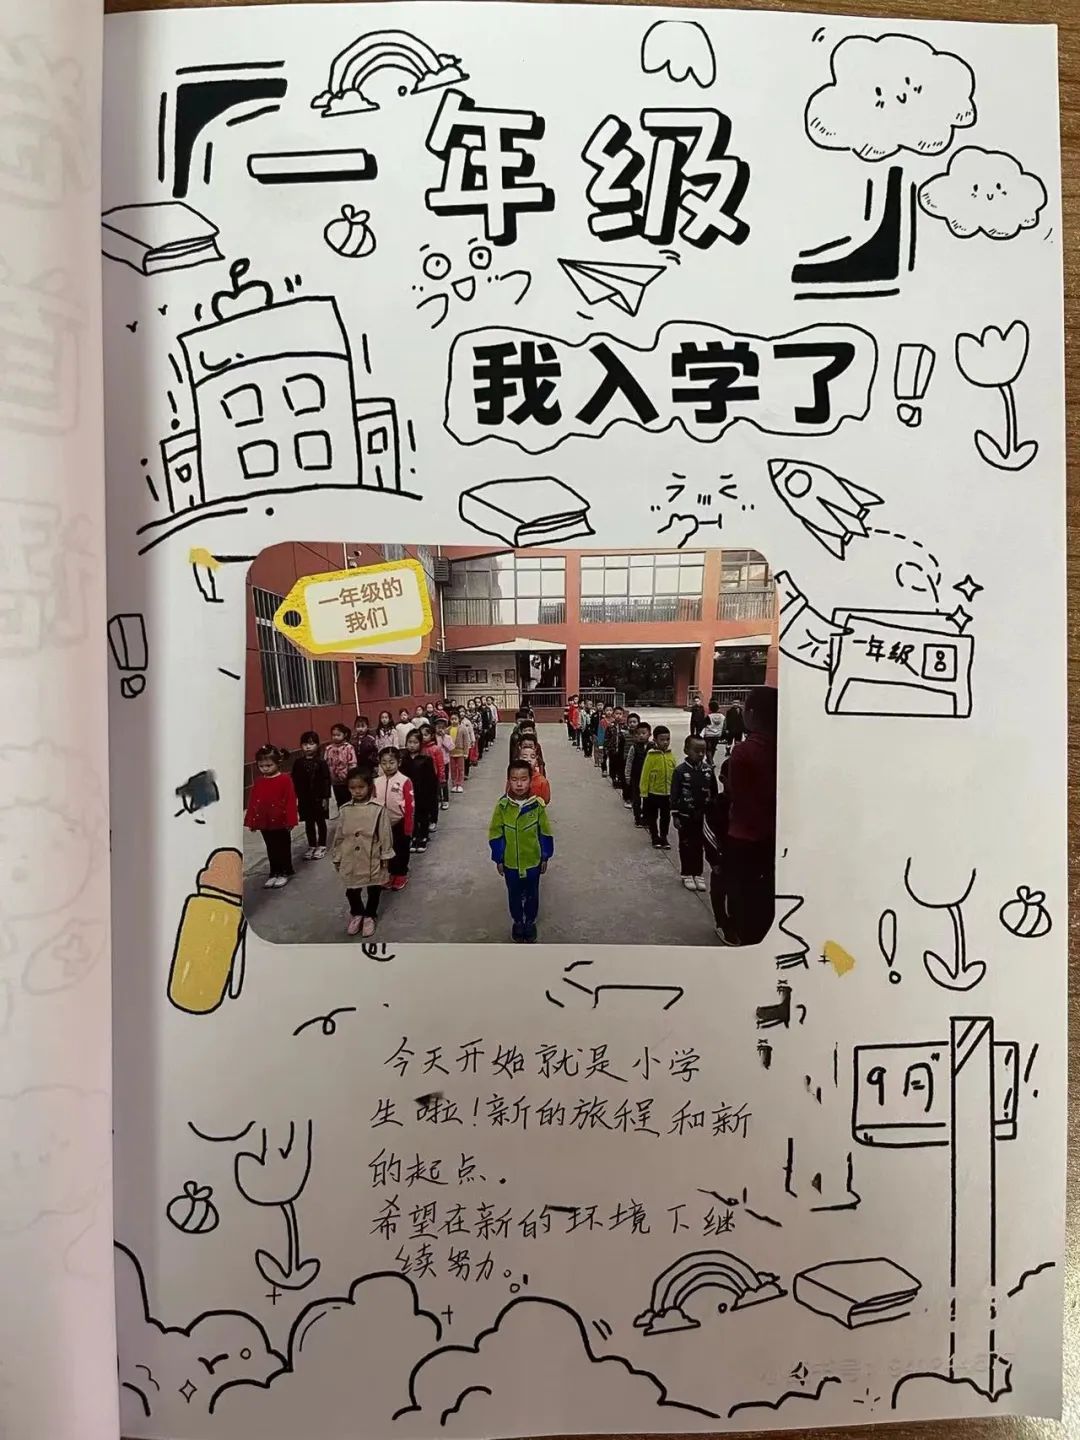 一年级
我入学了
一年级的
我们
一年级 8
9月
今天开始就是小学
生啦！新的旅程和新
的起点.
希望在新的环境下继
续努力。